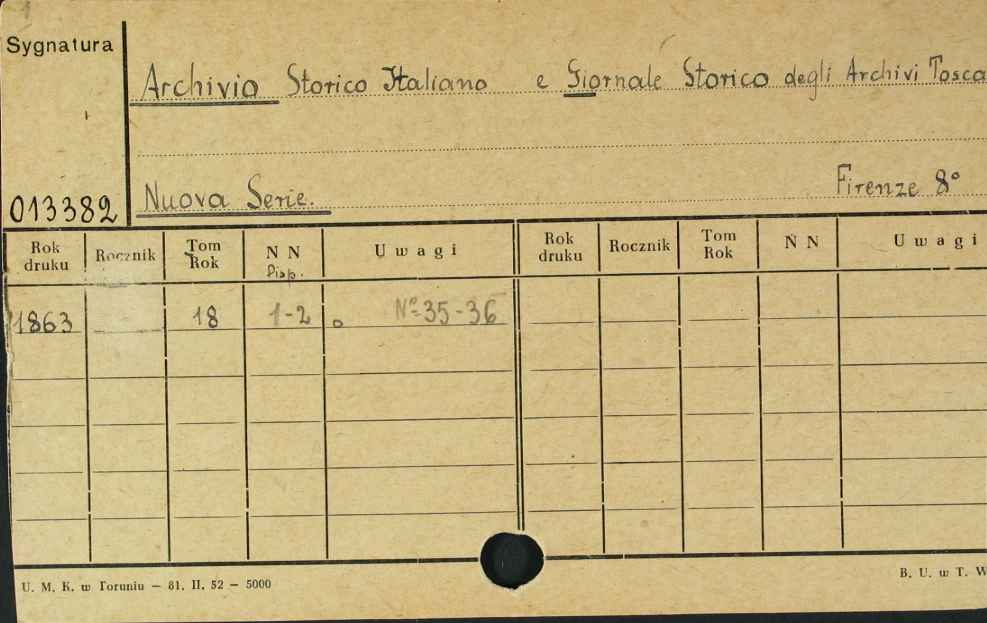 Sygnatura
Archivio Storico Italiano e Giornale Storico degli Archivi Tosca
Nuova Serie. Firenze 8°
013382
Rok druku Rocznik Tom Rok N N Disp. U w a g i Rok druku Rocznik Tom Rok N N U w a g i
1863 18 1-2 No 35-36
U. M. K. w Toruniu — 81. II. 52 — 5000
B. U. w T. W